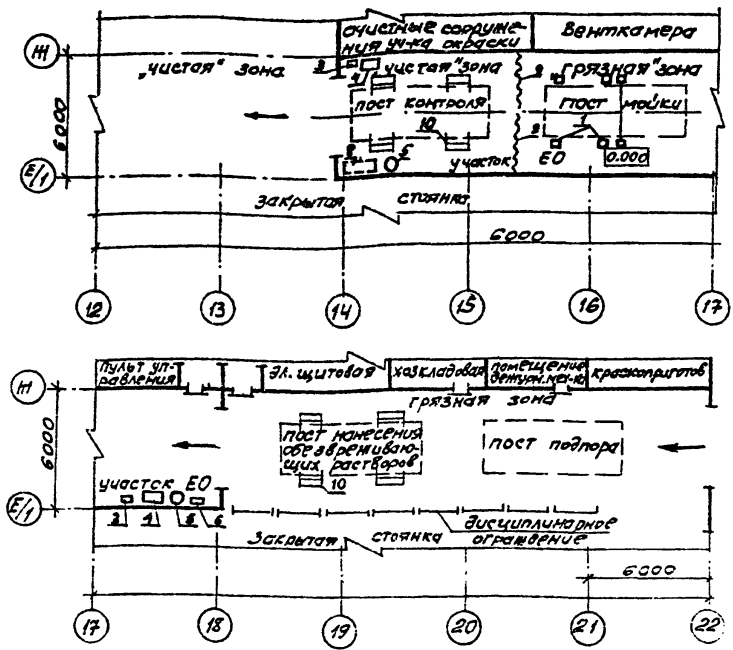 очистные сооруже-
ния уч-ка окраски
Венткамера
Ж
„чистая" зона
3
4
„чистая" зона
9
„грязная" зона
6000
пост контроля
10
пост мойки
1
9
5
участок
ЕО
0.000
Е/1
закрытая стоянка
6000
12
13
14
15
16
17
пульт уп-
равления
эл. щитовая
хозкладовая
помещение
дежурн.мех-ка
краскоприготов
Ж
грязная зона
6000
пост нанесения
обезвреживаю-
щих растворов
пост подпора
10
участок ЕО
Е/1
3
4
5
6
дисциплинарное
ограждение
Закрытая стоянка
6000
17
18
19
20
21
22